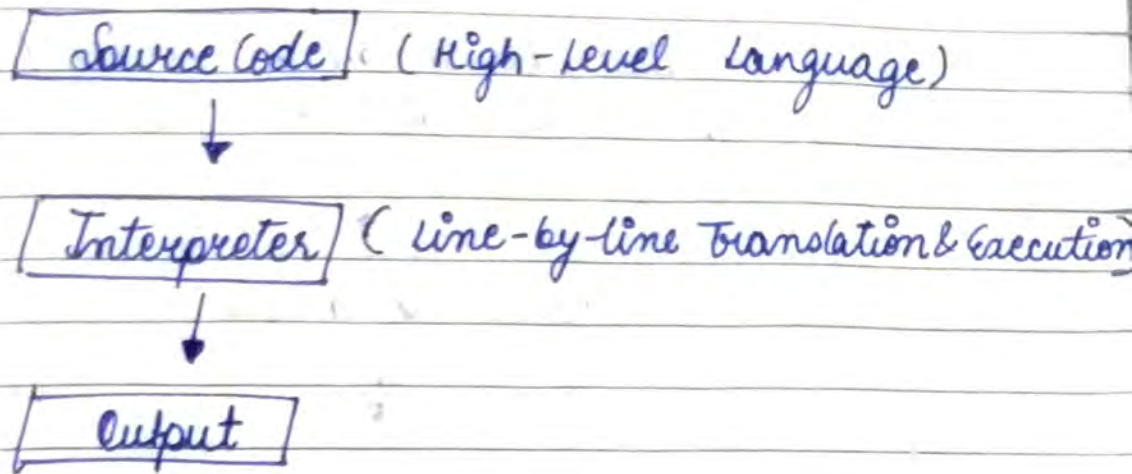 Source Code (High-Level Language)
Interpreter (Line-by-line Translation & Execution)
Output